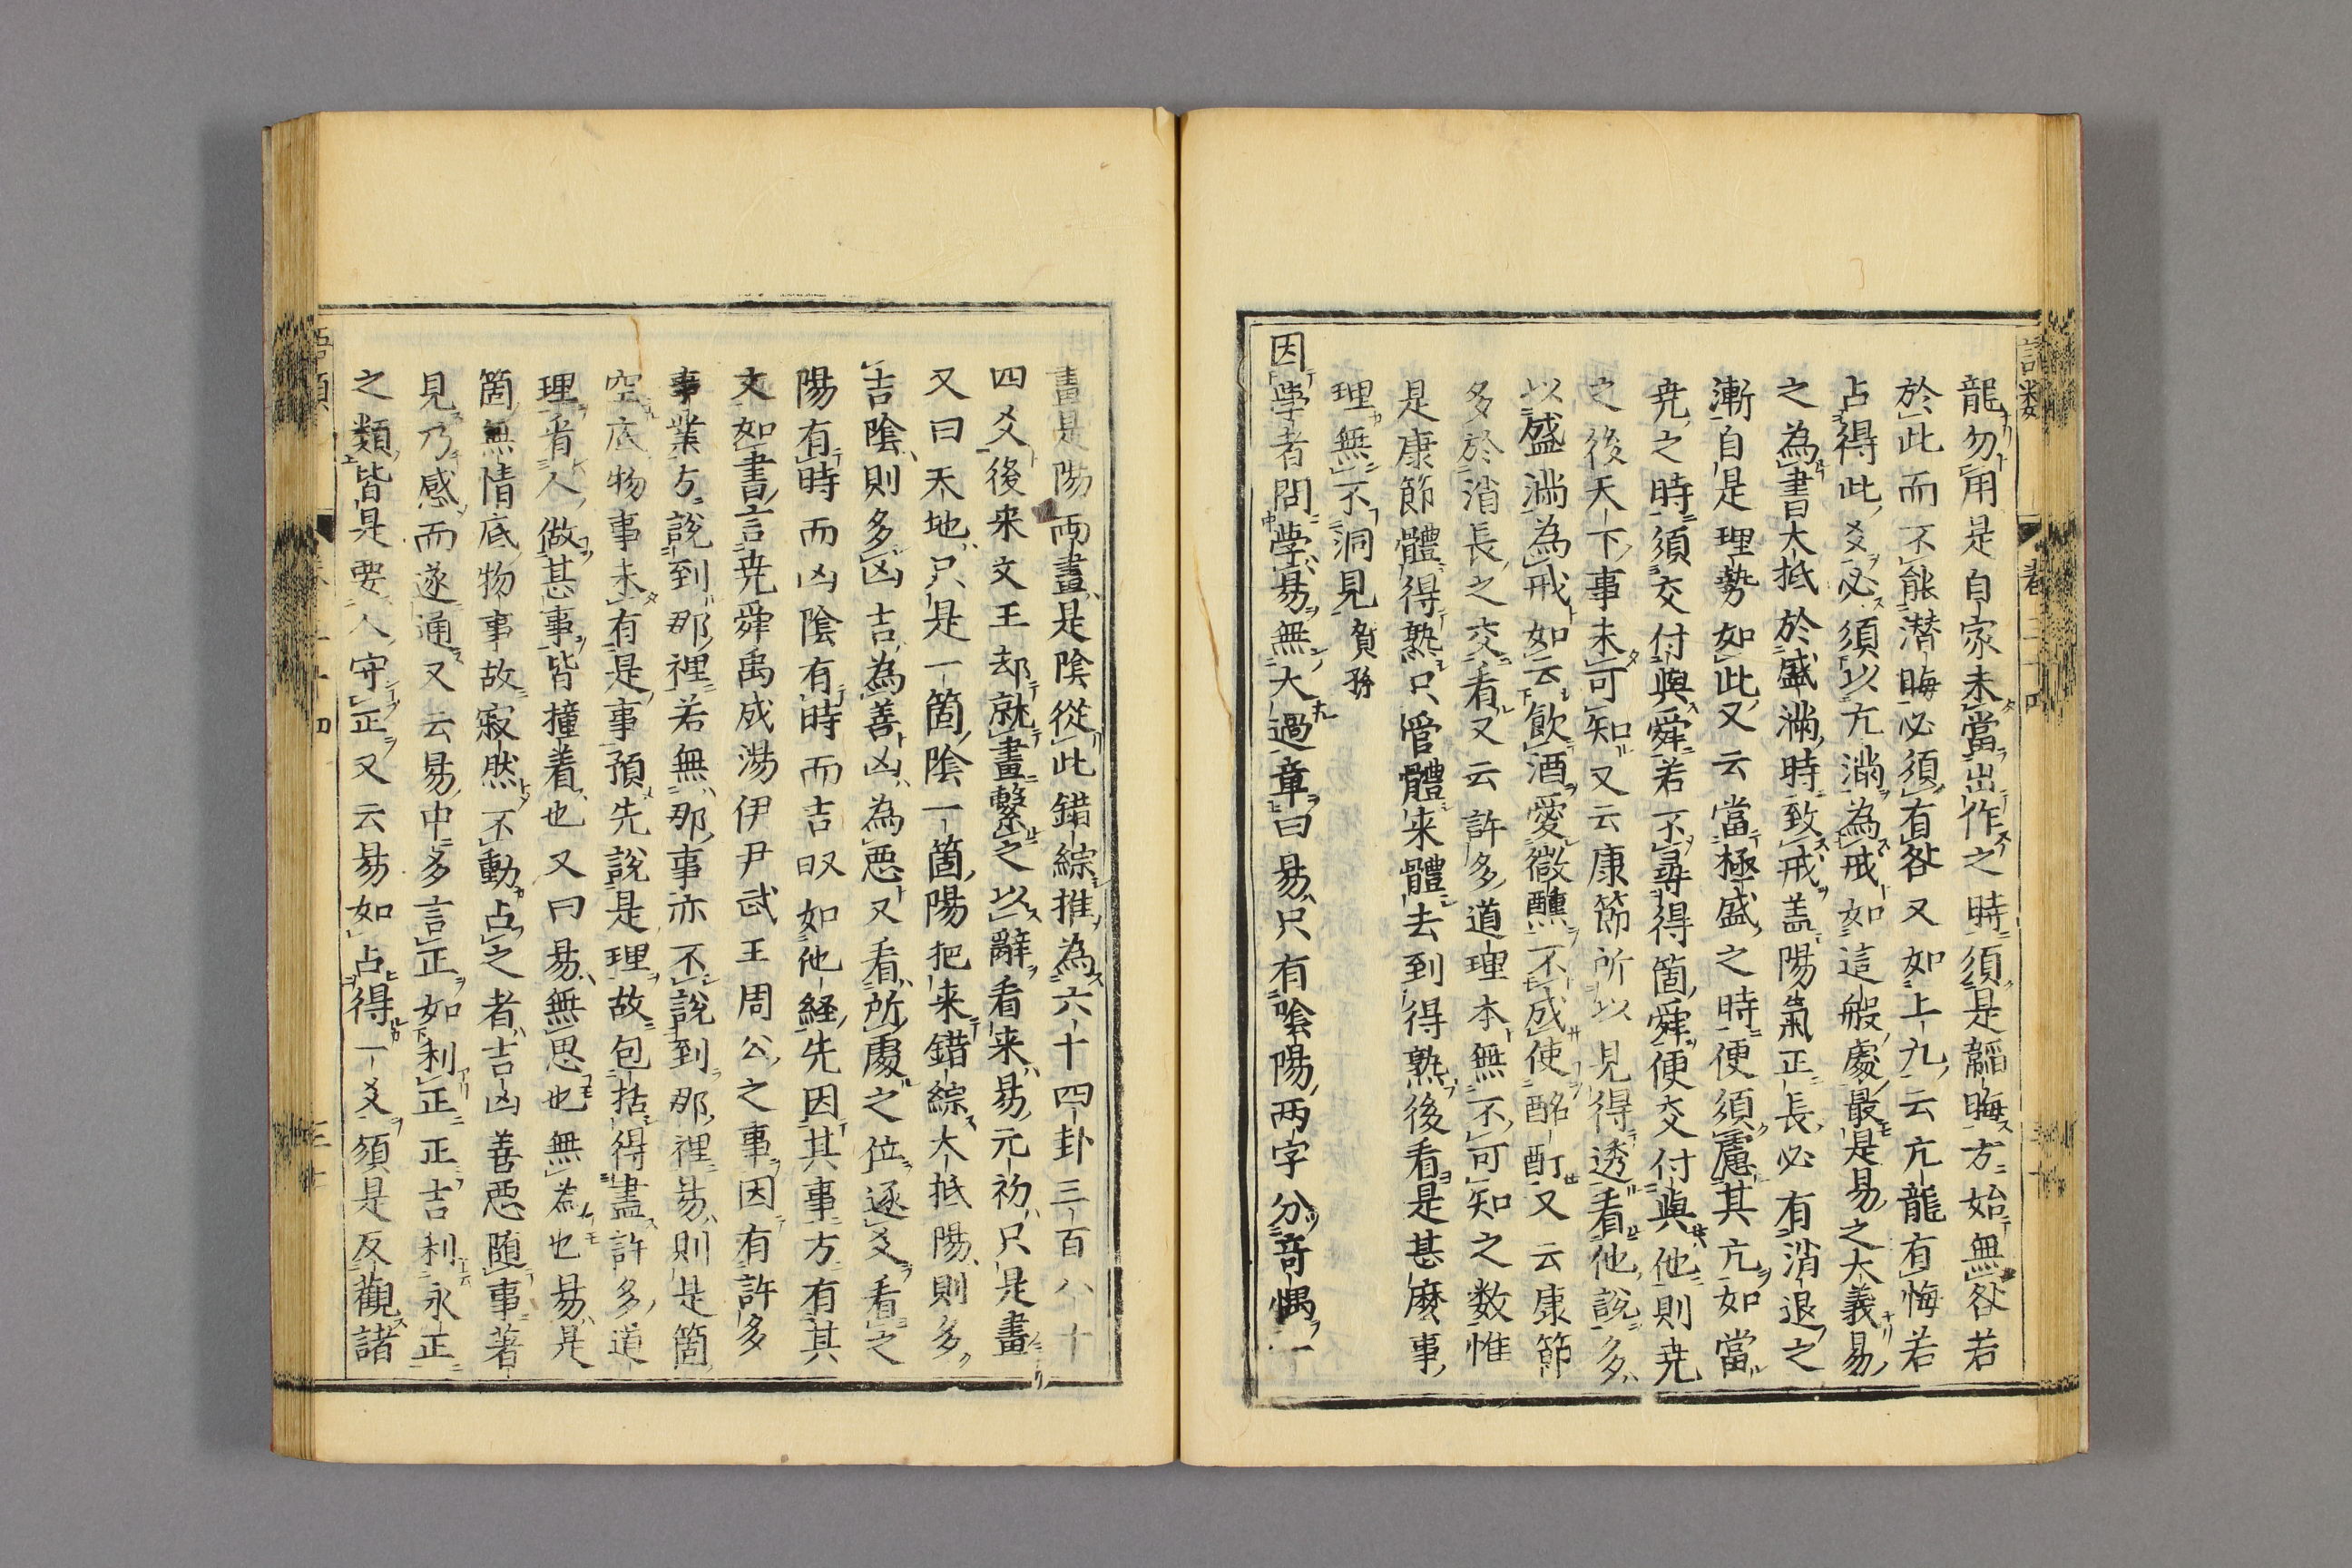 龍勿用是自家未當出作之時須是韜晦方始無咎若
於此而不能潛晦必須有咎又如上九云亢龍有悔若
占得此爻必須以亢滿為戒如這般處最是易之大義易
之為書大抵於盛滿時致戒盖陽氣正長必有消退之
漸自是理勢如此又云當極盛之時便須慮其亢如當
尭之時須交付與舜若不尋得箇舜便交付與他則尭
之後天下事未可知又云康節所以見得透看他說多
以盛滿為戒如云飲酒愛微醺不成使酩酊又云康節
多於消長之交看又云許多道理本無不可知之数惟
是康節體得熟只管體来體去到得熟後看是甚麽事
理無不洞見賀孫
因學者問學易無大過章曰易只有陰陽两字分奇偶一
畫是陽两畫是陰從此錯綜推為六十四卦三百八十
四爻後来文王却就畫繫之以辭看来易元初只是畫
又曰天地只是一箇陰一箇陽把来錯綜大抵陽則多
吉陰則多凶吉為善凶為惡又看所處之位逐爻看之
陽有時而凶陰有時而吉㕥如他経先因其事方有其
文如書言尭舜禹成湯伊尹武王周公之事因有許多
事業方說到那裡若無那事亦不說到那裡易則是箇
空底物事未有是事預先說是理故包括得盡許多道
理看人做甚事皆撞着也又曰易無思也無為也易是
箇無情底物事故寂然不動占之者吉凶善惡隨事著
見乃感而遂通又云易中多言正如利正正吉利永正
之類皆是要人守正又云易如占得一爻須是反觀諸